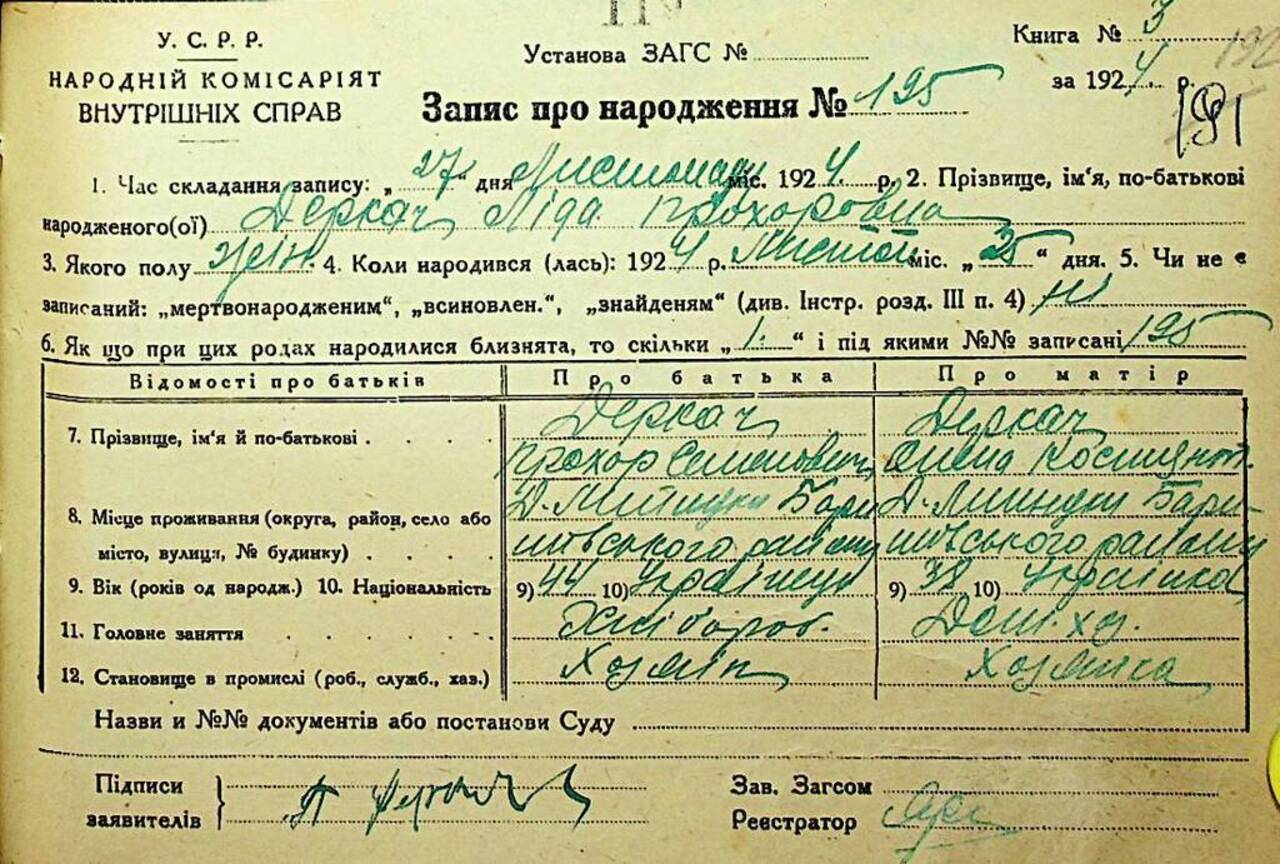 У. С. Р. Р.
НАРОДНІЙ КОМІСАРІЯТ
ВНУТРІШНІХ СПРАВ
Установа ЗАГС №
Книга № 3
за 1924 р.
192
191
Запис про народження № 195
1. Час складання запису: „27“ дня Листопаду міс. 1924 р. 2. Прізвище, ім'я, по-батькові
народженого(ої) Деркач Ліда Прохоровна
3. Якого полу жін. 4. Коли народився (лась): 1924 р. Листоп міс. „25“ дня. 5. Чи не є
записаний: „мертвонародженим“, „всиновлен.“, „знайденям“ (див. Інстр. розд. III п. 4) ні
6. Як що при цих родах народилися близнята, то скільки „1.“ і під якими №№ записані 195
Відомості про батьків Про батька Про матір
7. Прізвище, ім'я й по-батькові Деркач Деркач
Прохор Семенович Олена Костянт.
8. Місце проживання (округа, район, село або Бари Бари-
місто, вулиця, № будинку) шівського району шівського району
9. Вік (років од народж.) 10. Національність 9) 44 10) Українець 9) 38 10) Українка
11. Головне заняття Хлібороб. Дом. хоз.
12. Становище в промислі (роб., служб., хаз.) Хозяін Хозяйка
Назви и №№ документів або постанови Суду
Підписи
заявителів П Деркач
Зав. Загсом
Реєстратор